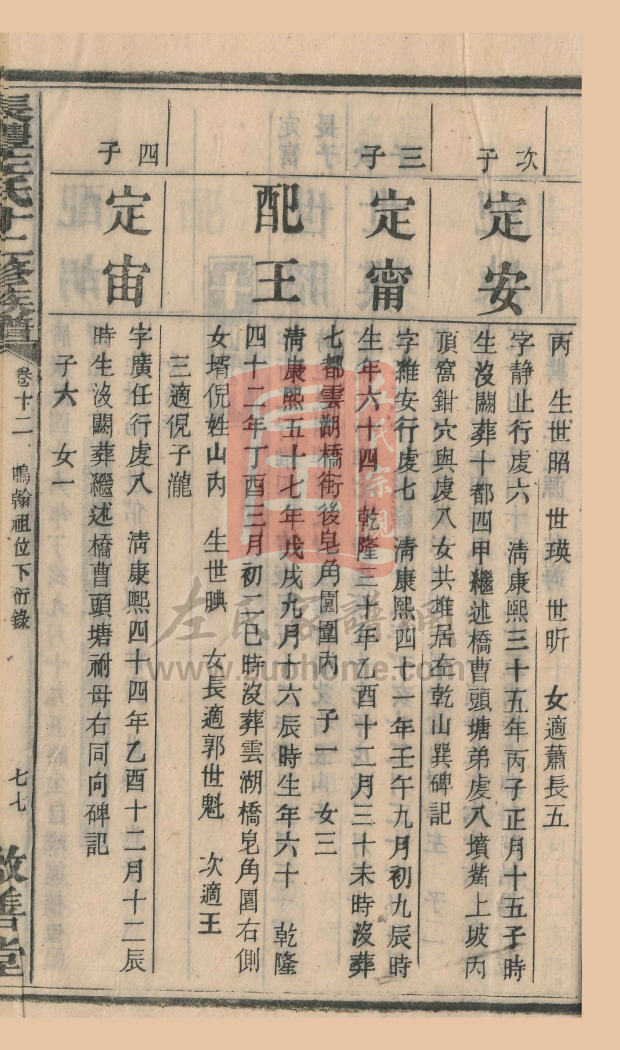 丙　生世昭　世瑛　世昕　女適蕭長五
次子
定安
字静止行虔六　清康熙三十五年丙子正月十五子時
生沒闕葬十都四甲繼述橋曹頭塘弟虔八墳觜上坡內
頂窩鉗穴與虔八女共堆居左乾山巽碑記
三子
定甯
字維安行虔七　清康熙四十一年壬午九月初九辰時
生年六十四　乾隆三十年乙酉十二月三十未時沒葬
七都雲湖橋衖後皂角園圍內　子一　女三
配王
清康熙五十七年戊戌九月十六辰時生年六十　乾隆
四十二年丁酉三月初二巳時沒葬雲湖橋皂角園右側
女壻倪姓山內　生世映　女長適郭世魁　次適王
三適倪子瀧
四子
定宙
字廣任行虔八　清康熙四十四年乙酉十二月十二辰
時生沒闕葬繼述橋曹頭塘祔母右同向碑記
子六　女一
左氏十二修族譜
卷十二　鳴翰祖位下衍錄
七七
敦善堂
左氏家譜網
www.zuohome.com